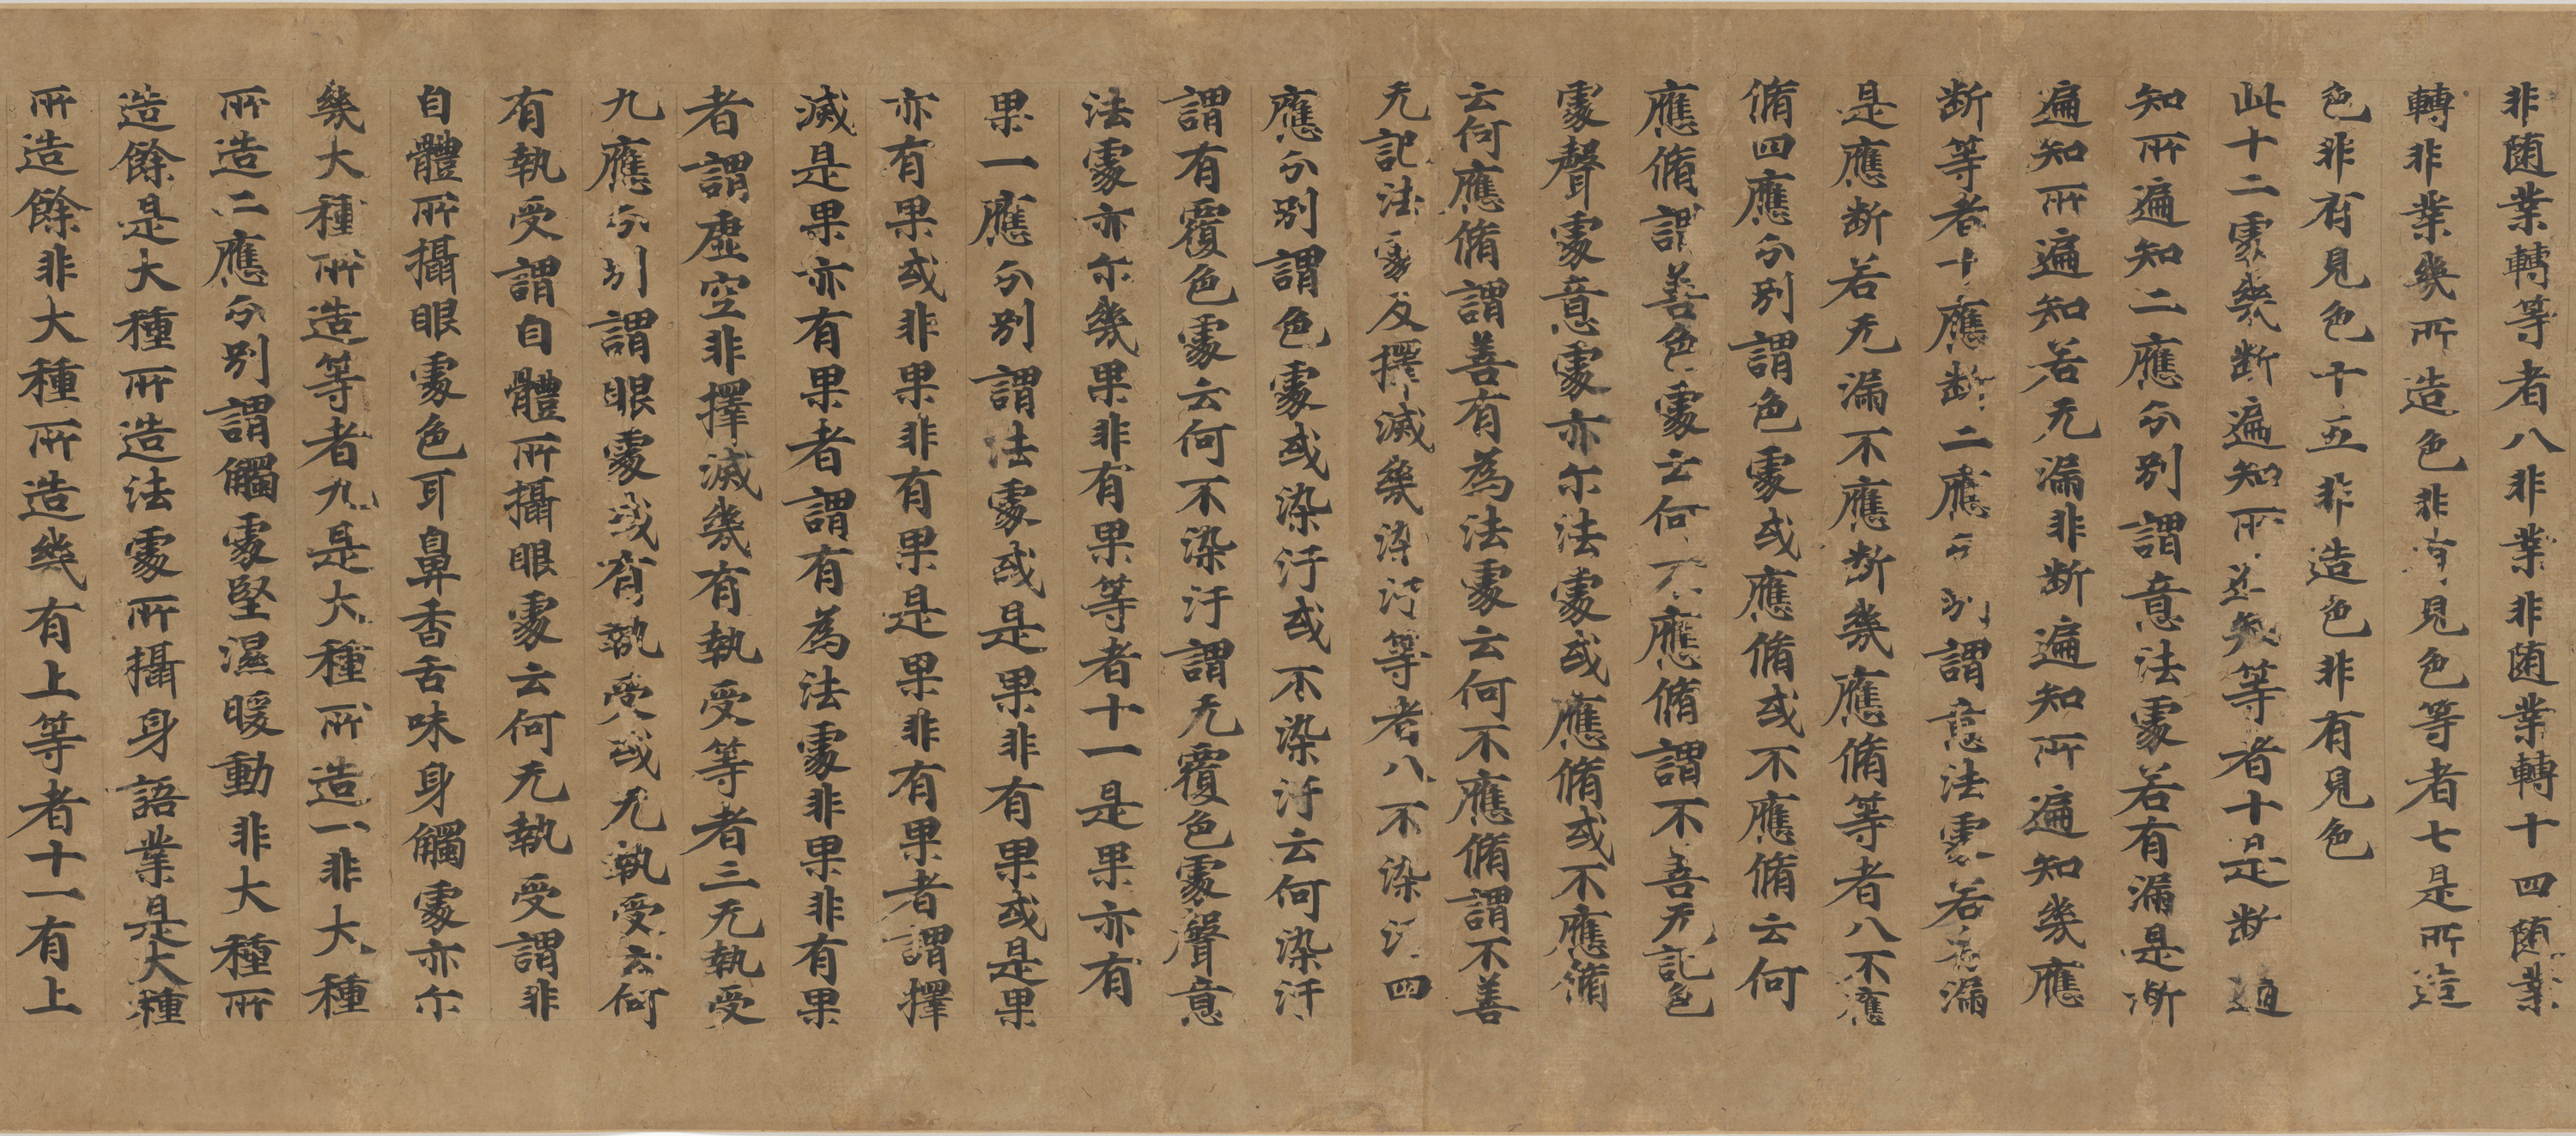 非随業轉等者八非業非随業轉十四随業
轉非業幾所造色非有見色等者七是所造
色非有見色十五非造色非有見色
此十二處幾断遍知所遍知等者十是断遍
知所遍知二應分別謂意法處若有漏是断
遍知所遍知若无漏非断遍知所遍知幾應
断等者十應断二應分別謂意法處若无漏
是應断若无漏不應断幾應脩等者八不應
脩四應分別謂色處或應脩或不應脩云何
應脩謂善色處云何不應脩謂不善无記色
處聲處意處亦尒法處或應脩或不應脩
云何應脩謂善有為法處云何不應脩謂不善
无記法處及擇滅幾染汙等者八不染汙四
應分別謂色處或染汙或不染汙云何染汙
謂有覆色處云何不染汙謂无覆色處聲意
法處亦尒幾果非有果等者十一是果亦有
果一應分別謂法處或是果非有果或是果
亦有果或非果非有果是果非有果者謂擇
滅是果亦有果者謂有為法處非果非有果
者謂虛空非擇滅幾有執受等者三无執受
九應分別謂眼處或有執受或无執受云何
有執受謂自體所攝眼處云何无執受謂非
自體所攝眼處色耳鼻香舌味身觸處亦尒
幾大種所造等者九是大種所造一非大種
所造二應分別謂觸處堅濕暖動非大種所
造餘是大種所造法處所攝身語業是大種
所造餘非大種所造幾有上等者十一有上